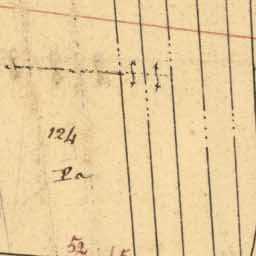 124
Pa
52